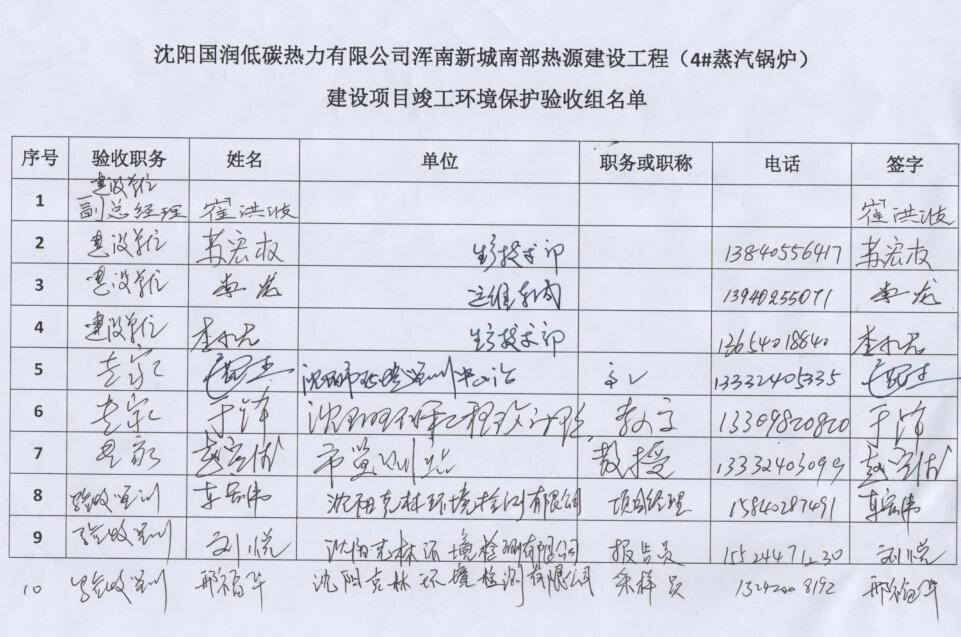 沈阳国润低碳热力有限公司浑南新城南部热源建设工程（4#蒸汽锅炉）
建设项目竣工环境保护验收组名单
序号 验收职务 姓名 单位 职务或职称 电话 签字
1 建设单位副总经理 崔洪波 崔洪波
2 建设单位 苏宏权 生产技术部 13840556417 苏宏权
3 建设单位 李龙 运维车间 13940255071 李龙
4 建设单位 生产技术部 13654018840
5 专家 13332405335
6 专家 于 13309820820 于
7 专家 市监测站 教授 13332403099
8 验收监测 车宏伟 沈阳克林环境检测有限公司 项目经理 15840287491 车宏伟
9 验收监测 刘悦 沈阳克林环境检测有限公司 报告员 15524471230 刘悦
10 验收监测 邢福华 沈阳克林环境检测有限公司 采样员 8192 邢福华